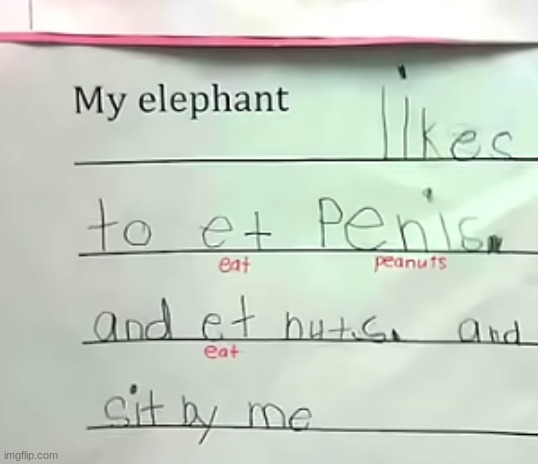 My elephant likes
to et Penis.
eat peanuts
and et nuts. and
eat
sit by me
imgflip.com